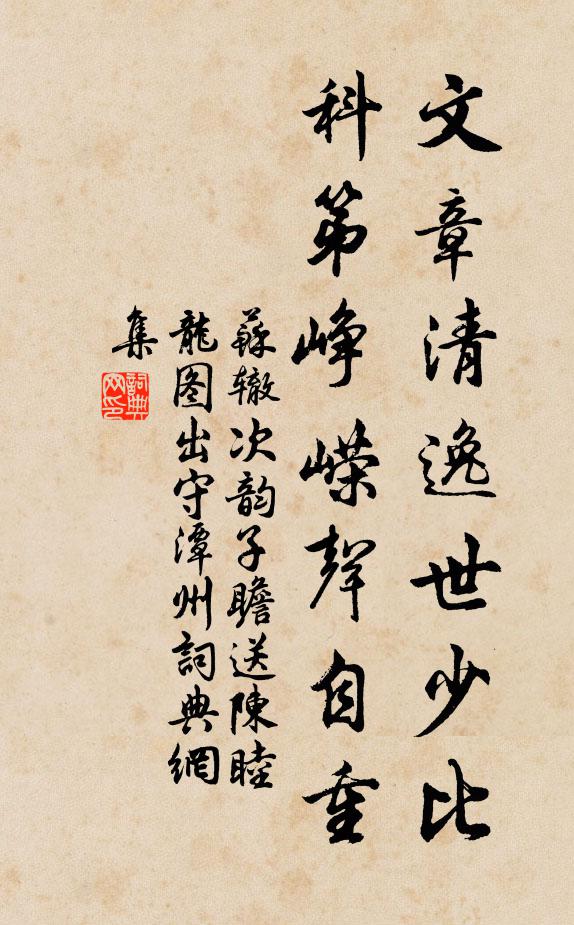 文章清逸世少比
科第峥嵘聲自重
蘇辙次韵子瞻送陳睦
龍图出守潭州詞典網
集
詞典
网印